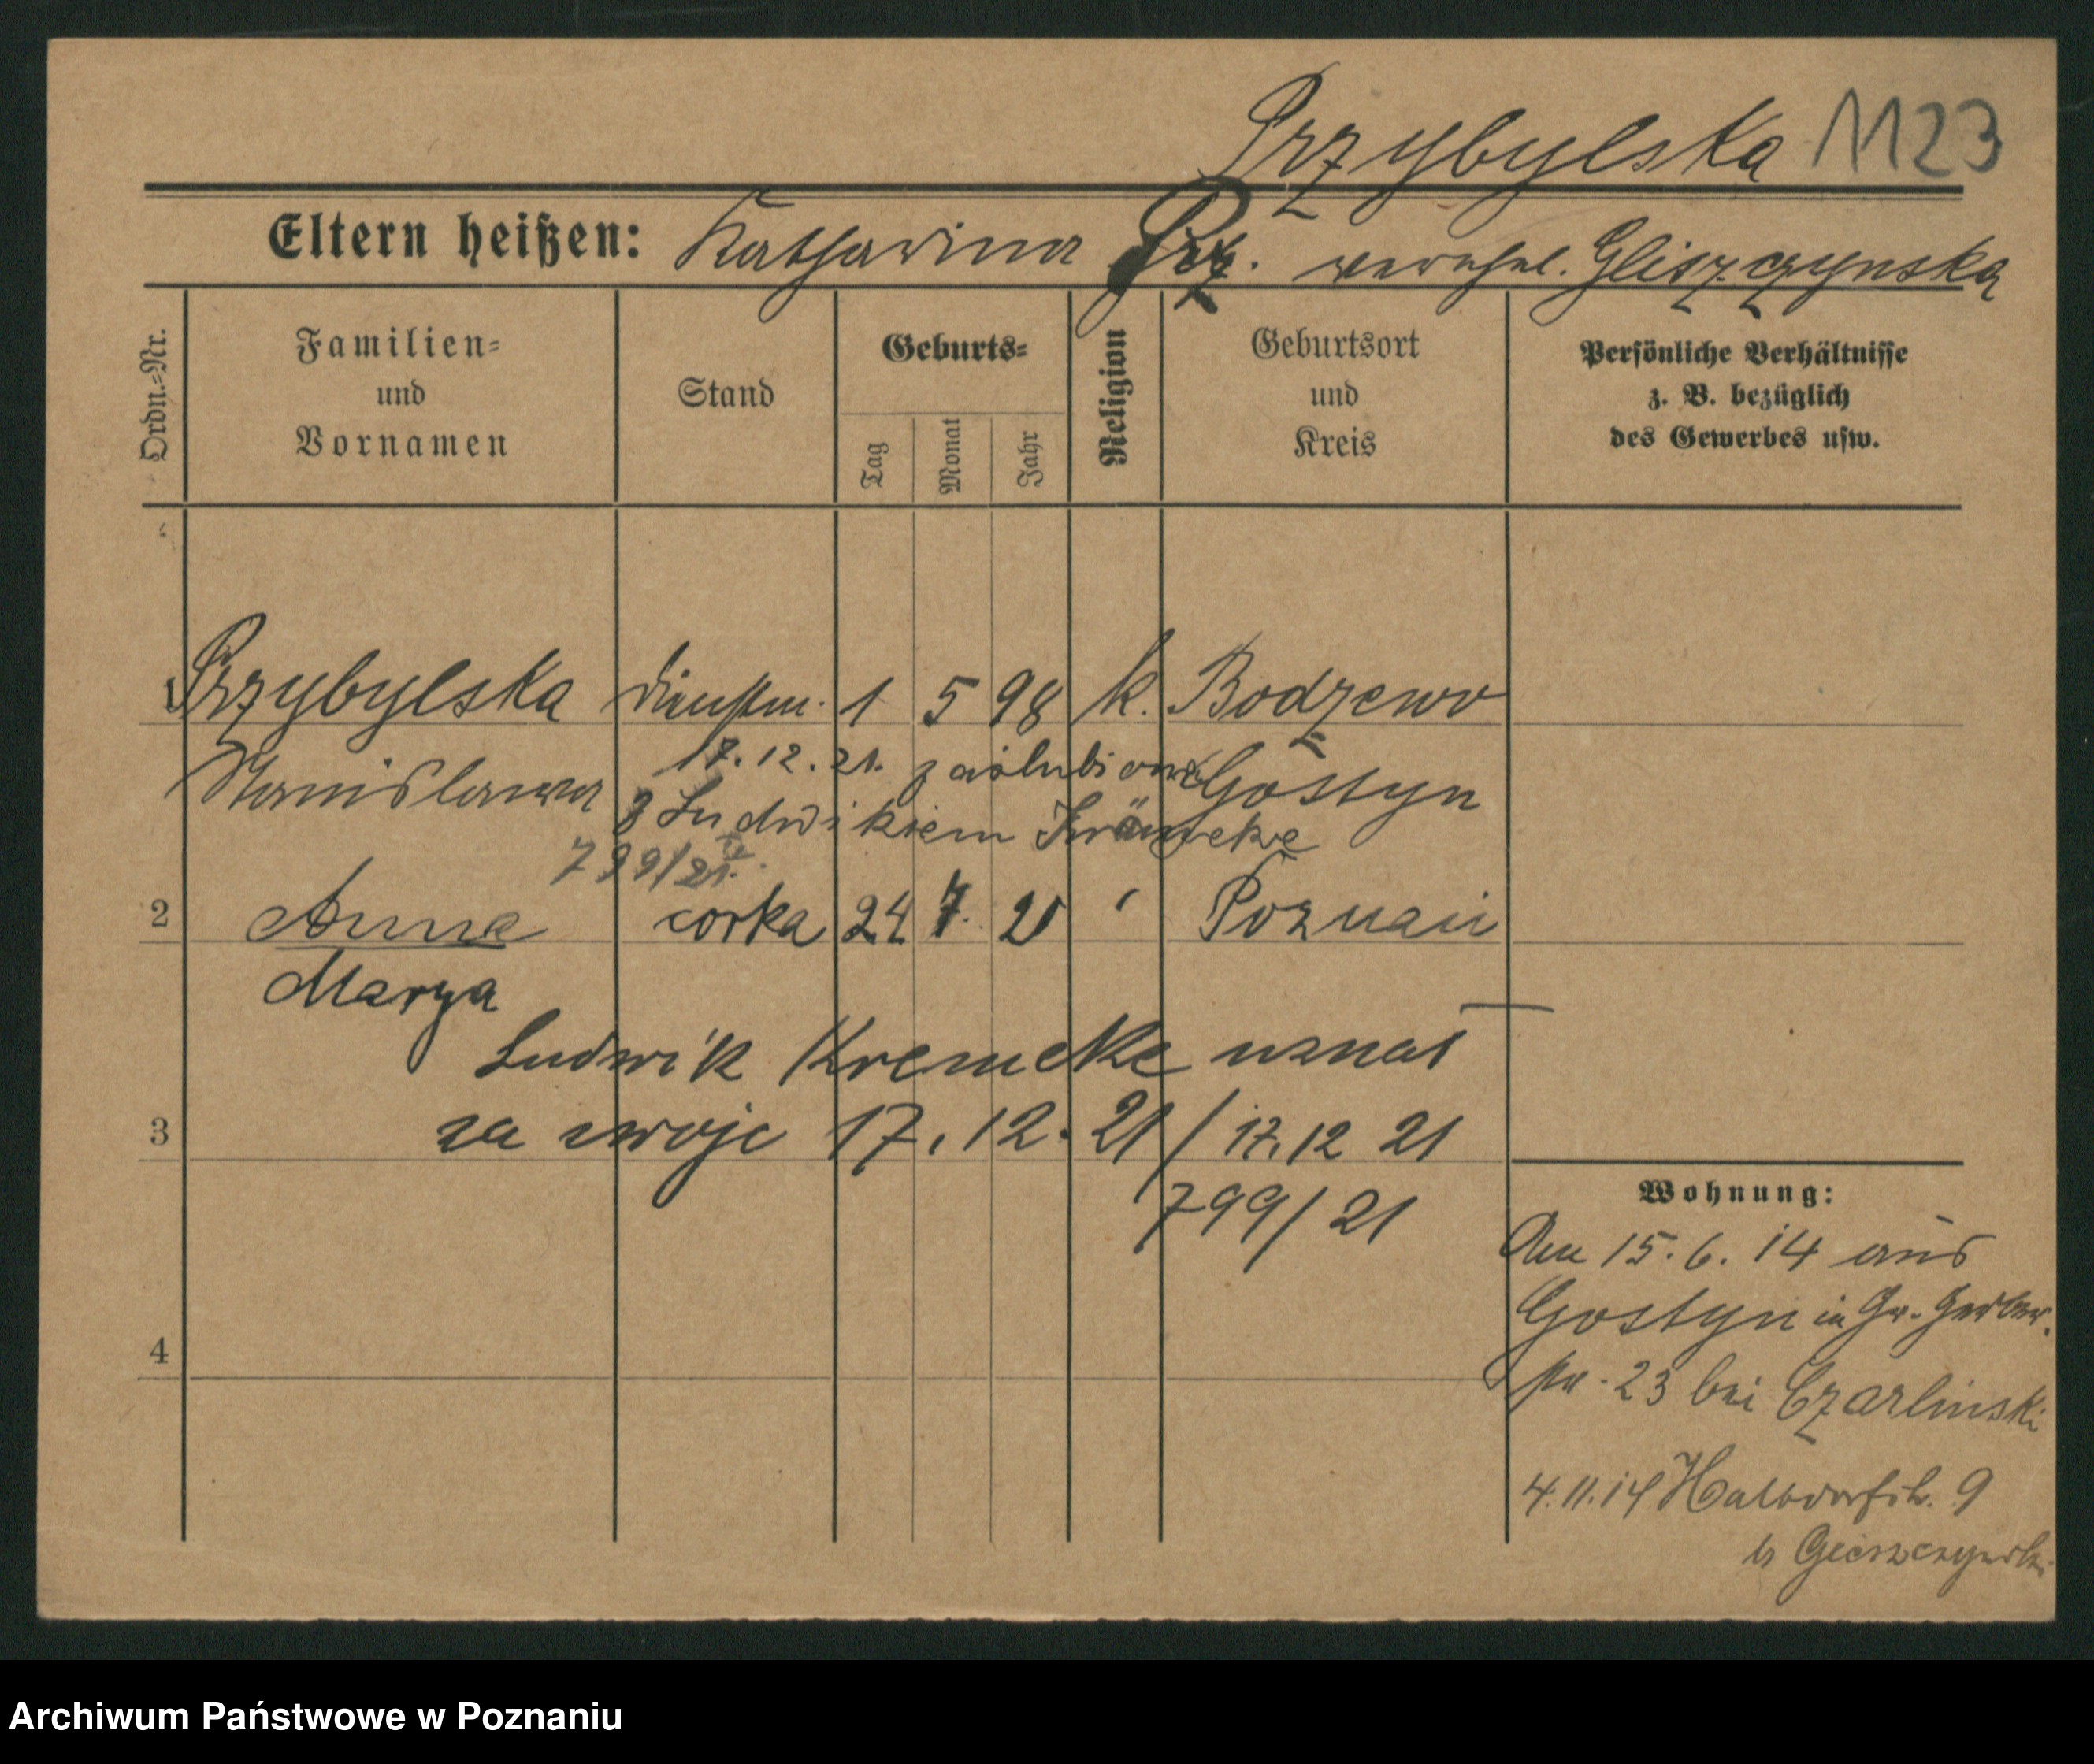 Przybylska 1123
Eltern heißen: Katharina Prz. verehel. Gliszczynska
Ordn.-Nr.
Familien-
und
Vornamen
Stand
Geburts-
Tag
Monat
Jahr
Religion
Geburtsort
und
Kreis
Persönliche Verhältnisse
z. B. bezüglich
des Gewerbes usw.
1 Przybylska Dienstm. 1 5 98 k. Bodzewo
17.12.21. zaślubiona
Stanislawa Gostyn
z Ludwikiem
799/21.
2 Anna corka 24 7. 21 Poznań
Marya
Ludwik Kremcke uznał
3 za swoje 17.12.21 / 17.12 21
799/21
4
Wohnung:
Am 15.6.14 aus
Gostyn in Gr. Gerber
str. 23 bei Czarlinski
4.11.14 Halbdorfstr. 9
Archiwum Państwowe w Poznaniu